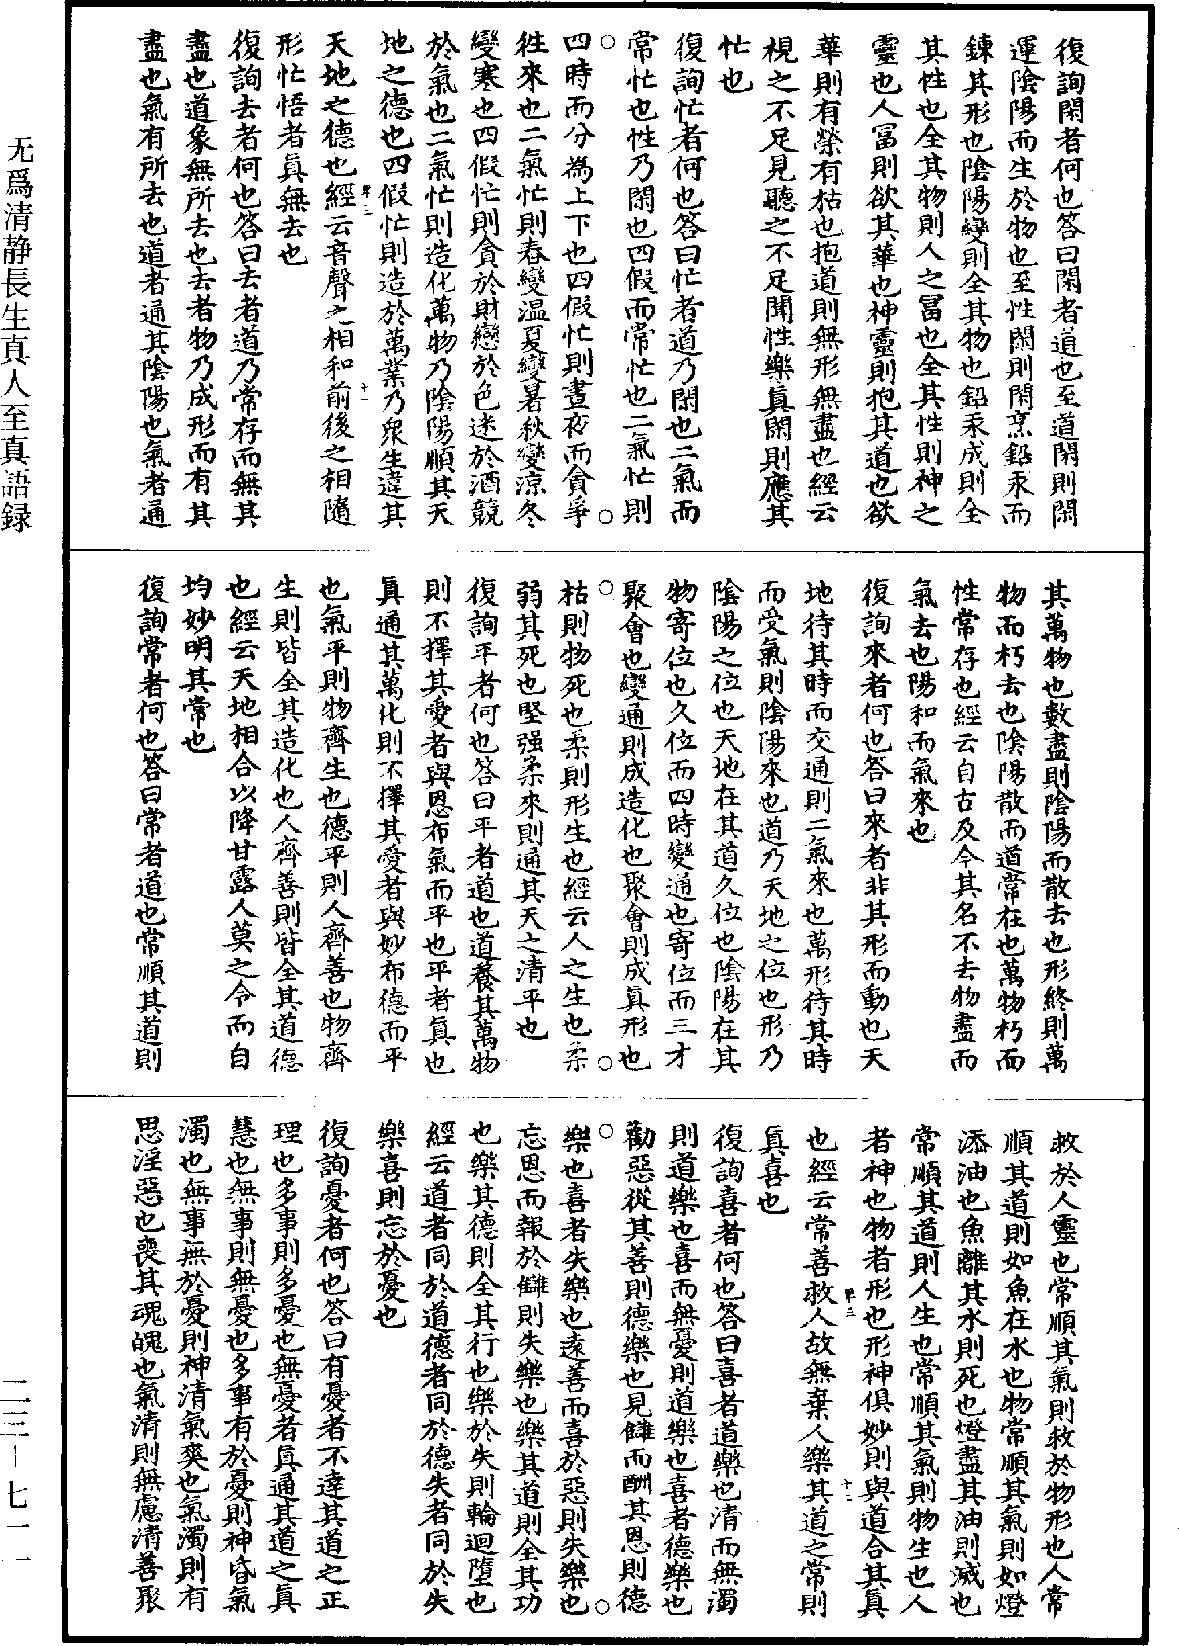 復詢閑者何也答曰閑者道也至道閑則閑
運陰陽而生於物也至性閑則閑烹鉛汞而
鍊其形也陰陽變則全其物也鉛汞成則全
其性也全其物則人之冨也全其性則神之
靈也人冨則欲其華也神靈則抱其道也欲
華則有榮有枯也抱道則無形無盡也經云
視之不足見聽之不足聞性樂真閑則應其
忙也
復詢忙者何也答曰忙者道乃閑也二氣而
常忙也性乃閑也四假而常忙也二氣忙則
四時而分為上下也四假忙則晝夜而貪爭
徃來也二氣忙則春變温夏變暑秋變涼冬
變寒也四假忙則貪於財戀於色迷於酒競
於氣也二氣忙則造化萬物乃陰陽順其天
地之德也四假忙則造於萬業乃衆生違其
天地之德也經云音聲之相和前後之相隨
形忙悟者真無去也
復詢去者何也答曰去者道乃常存而無其
盡也道象無所去也去者物乃成形而有其
盡也氣有所去也道者通其陰陽也氣者通
其萬物也數盡則陰陽而散去也形終則萬
物而朽去也陰陽散而道常在也萬物朽而
性常存也經云自古及今其名不去物盡而
氣去也陽和而氣來也
復詢來者何也答曰來者非其形而動也天
地待其時而交通則二氣來也萬形待其時
而受氣則陰陽來也道乃天地之位也形乃
陰陽之位也天地在其道久位也陰陽在其
物寄位也久位而四時變通也寄位而三才
聚會也變通則成造化也聚會則成真形也
枯則物死也柔則形生也經云人之生也柔
弱其死也堅强柔來則通其天之清平也
復詢平者何也答曰平者道也道養其萬物
則不擇其愛者與恩布氣而平也平者真也
真通其萬化則不擇其愛者與妙布德而平
也氣平則物齊生也德平則人齊善也物齊
生則皆全其造化也人齊善則皆全其道德
也經云天地相合以降甘露人莫之令而自
均妙明其常也
復詢常者何也答曰常者道也常順其道則
救於人靈也常順其氣則救於物形也人常
順其道則如魚在水也物常順其氣則如燈
添油也魚離其水則死也燈盡其油則滅也
常順其道則人生也常順其氣則物生也人
者神也物者形也形神俱妙則與道合其真
也經云常善救人故無棄人樂其道之常則
真喜也
復詢喜者何也答曰喜者道樂也清而無濁
則道樂也喜而無憂則道樂也喜者德樂也
勸惡從其善則德樂也見讎而酬其恩則德
樂也喜者失樂也遠善而喜於惡則失樂也
忘恩而報於讎則失樂也樂其道則全其功
也樂其德則全其行也樂於失則輪迴墮也
經云道者同於道德者同於德失者同於失
樂喜則忘於憂也
復詢憂者何也答曰有憂者不達其道之正
理也多事則多憂也無憂者真通其道之真
慧也無事則無憂也多事有於憂則神昏氣
濁也無事無於憂則神清氣爽也氣濁則有
思淫惡也喪其魂魄也氣清則無慮清善聚
无爲清静長生真人至真語録
二三—七一一